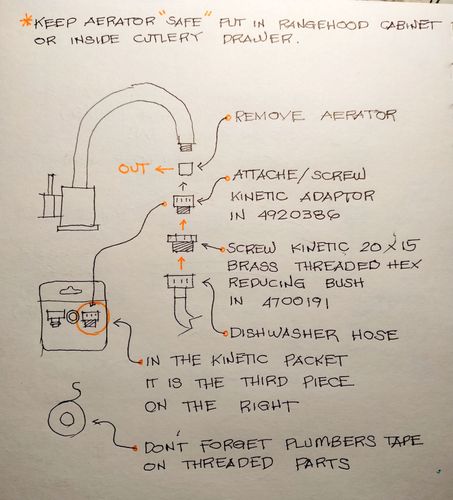 *KEEP AERATOR "SAFE" PUT IN RANGEHOOD CABINET
OR INSIDE CUTLERY DRAWER.
REMOVE AERATOR
OUT
ATTACHE/SCREW
KINETIC ADAPTOR
IN 4920386
SCREW KINETIC 20X15
BRASS THREADED HEX
REDUCING BUSH
IN 4700191
DISHWASHER HOSE
IN THE KINETIC PACKET
IT IS THE THIRD PIECE
ON THE RIGHT
DON'T FORGET PLUMBERS TAPE
ON THREADED PARTS